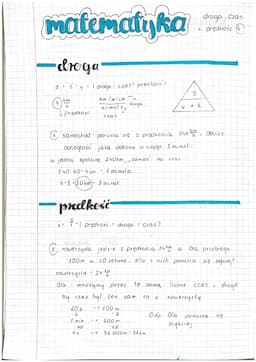 matematyka
droga, czas
i prędkość
droga
s = v · t (droga = czas · prędkość)
km/m/cm
droga
km/h
s
v · t
prędkość
czas
samochód porusza się z prędkością 240 km/h, oblicz
odległość jaką pokona w ciągu 5 minut.
240 : 60 = 4 km - 1 minuta
4 · 5 = 20 km - 5 minut
prędkość
v = s/t (prędkość = droga : czas)
rowerzysta jedzie z prędkością 24 km/h a Ola przebiegła
100m w 10 sekund. Kto z nich porusza się szybciej?
rowerzysta: 24 km/h
Ola: mnożymy przez tę samą liczbę czas i drogę
by czas był ten sam co u rowerzysty
10 s → 100 m
1 min → 600 m
1 h → 36 000 m = 36 km
Odp. Ola porusza się
szybciej